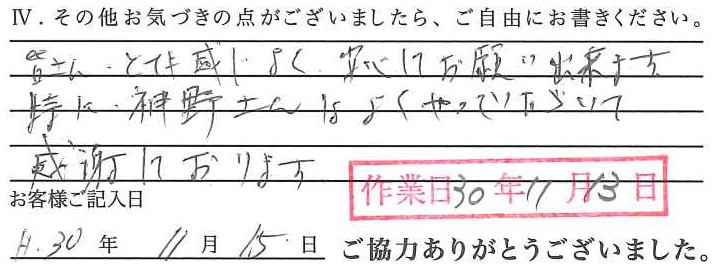 Ⅳ．その他お気づきの点がございましたら、ご自由にお書きください。
皆さん、とても感じよく、安心してお願い出来ます
特に、神野さんはよくやっていただいて
感謝しております
作業日30年11月13日
お客様ご記入日
H.30年11月15日 ご協力ありがとうございました。